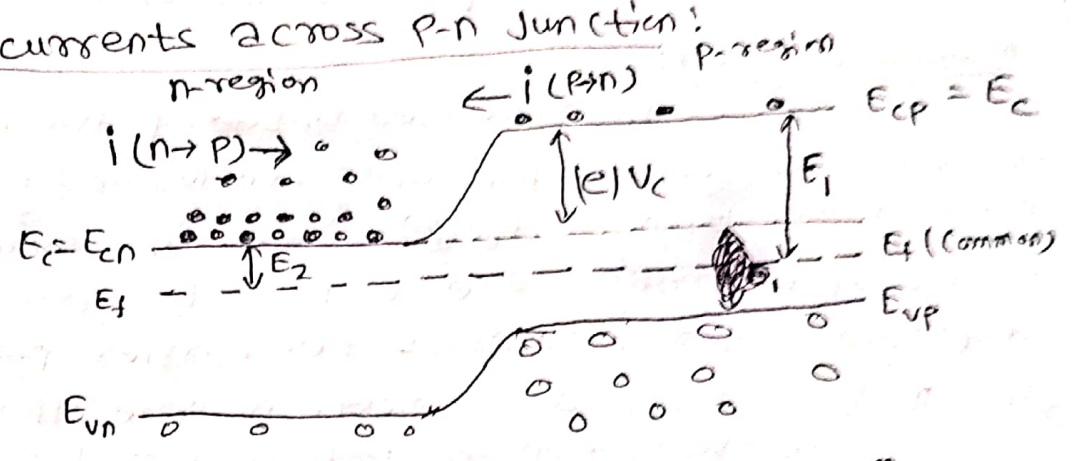 currents across p-n Junction:
n-region
p-region
← i (p→n)
i (n→p)→
E_cp = E_c
|e| V_c
E_1
E_c = E_cn
E_2
E_f (Common)
E_f
E_vp
E_vn